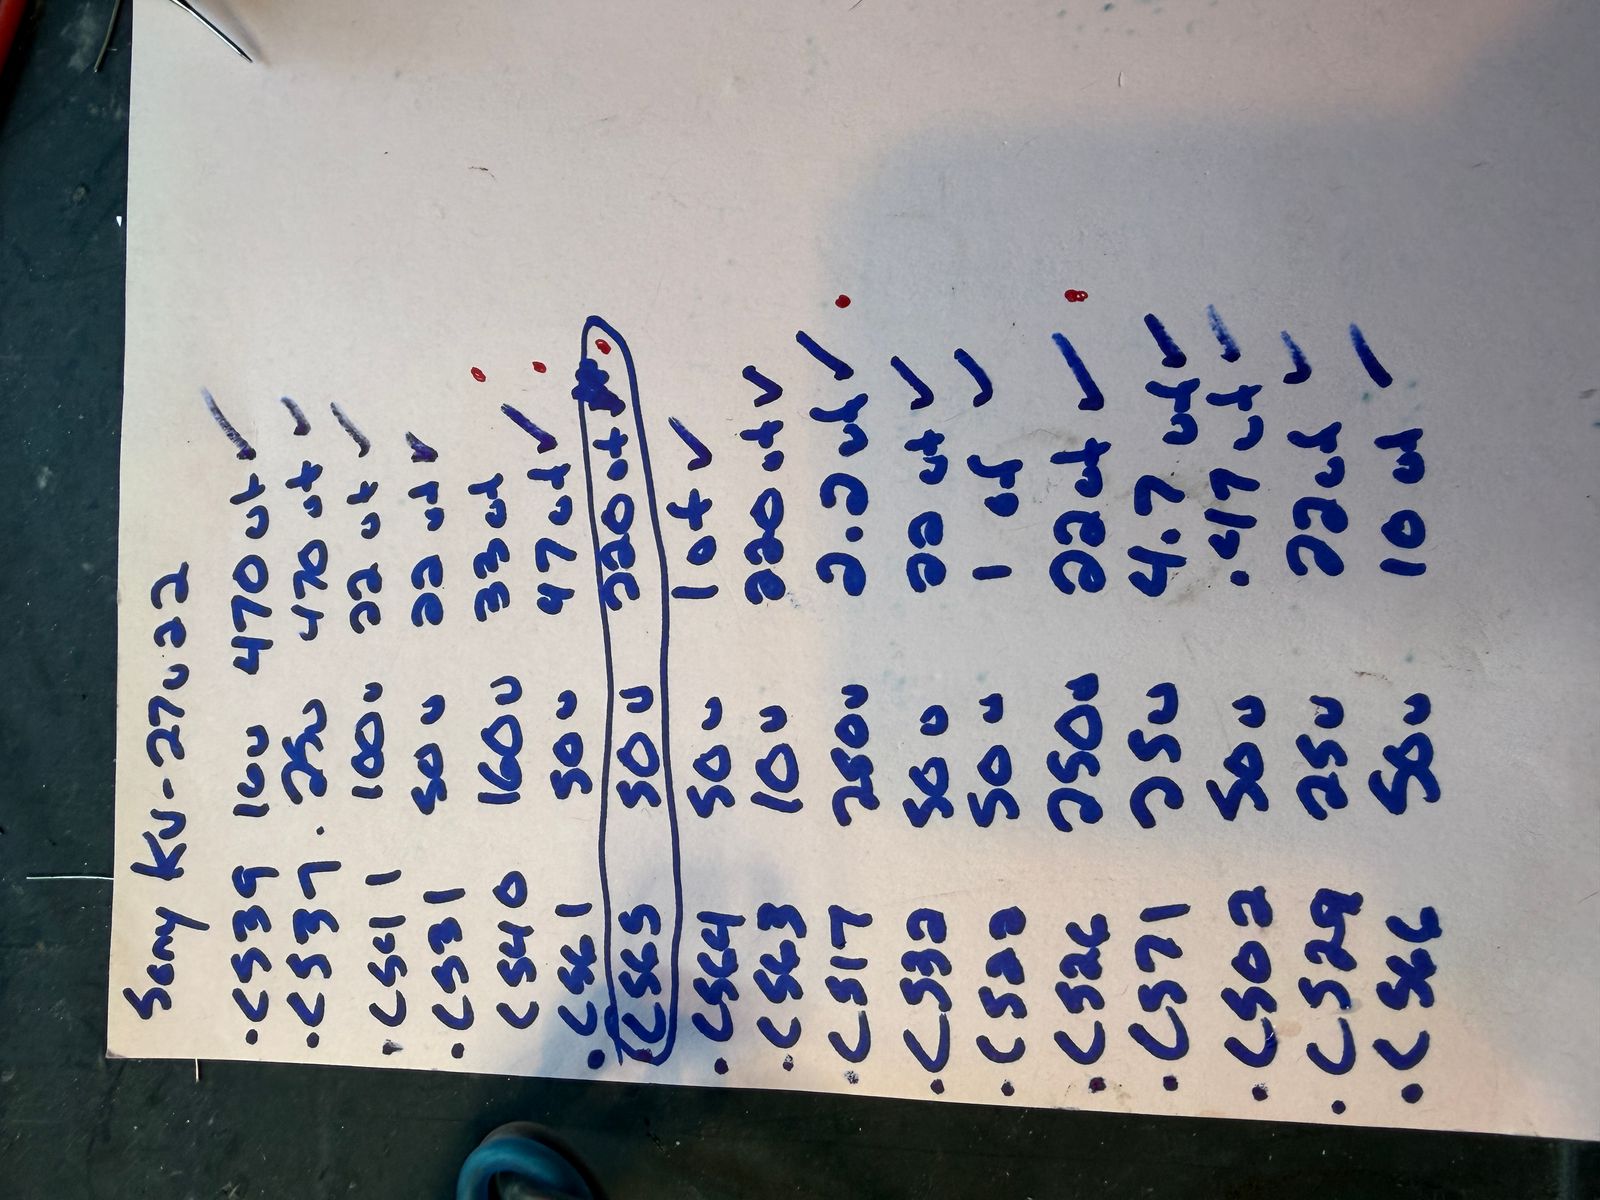 Sony KV-27V22
. C539 16v 470uf ✓
. C537. 25v 470uf ✓
. C511 100v 22uf ✓
. C531 50v 22uf ✓
C540 160v 33uf
. C561 50v 47uf ✓
. C565 50v 220uf
. C564 50v 1uf ✓
. C563 10v 220uf ✓
. C517 250v 2.2uf ✓
. C532 50v 22uf ✓
. C522 50v 1uf ✓
. C526 250v 22uf ✓
. C571 25v 4.7uf ✓
. C502 50v .47uf ✓
. C529 25v 22uf ✓
. C566 50v 10uf ✓